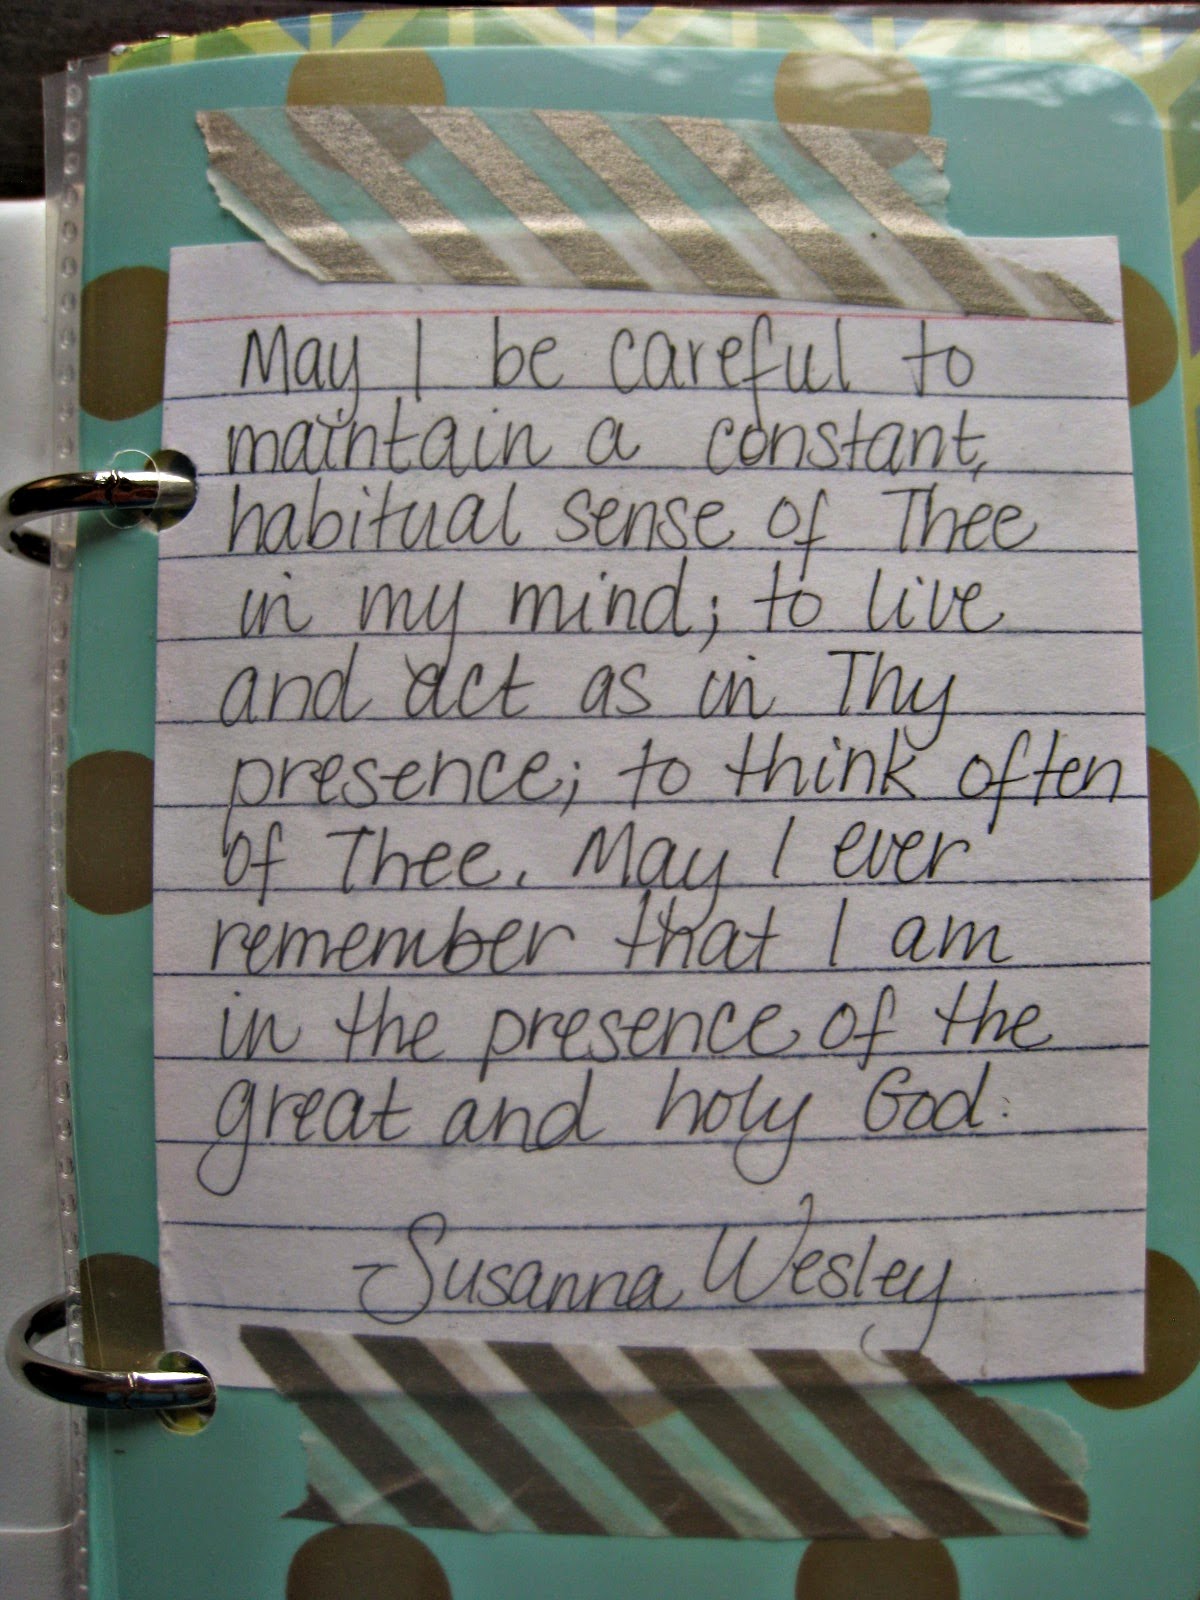 May I be careful to
maintain a constant,
habitual sense of Thee
in my mind; to live
and act as in Thy
presence; to think often
of Thee. May I ever
remember that I am
in the presence of the
great and holy God.
-Susanna Wesley